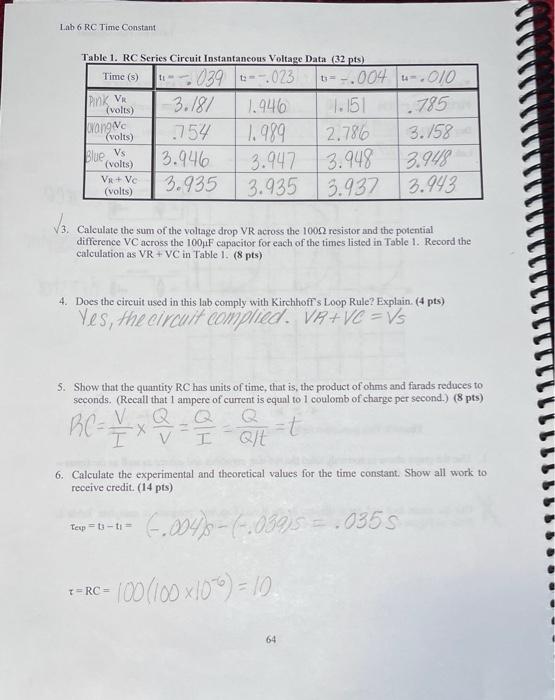 Lab 6 RC Time Constant
Table 1. RC Series Circuit Instantaneous Voltage Data (32 pts)
Time (s) t1 = -.039 t2 = -.023 t3 = -.004 t4 = .010
Pink VR (volts) 3.181 1.946 1.151 .785
Orange VC (volts) .754 1.989 2.786 3.158
Blue VS (volts) 3.946 3.947 3.948 3.948
VR + VC (volts) 3.935 3.935 3.937 3.943
√3. Calculate the sum of the voltage drop VR across the 100Ω resistor and the potential
difference VC across the 100μF capacitor for each of the times listed in Table 1. Record the
calculation as VR + VC in Table 1. (8 pts)
4. Does the circuit used in this lab comply with Kirchhoff's Loop Rule? Explain. (4 pts)
Yes, the circuit complied. VR + VC = VS
5. Show that the quantity RC has units of time, that is, the product of ohms and farads reduces to
seconds. (Recall that 1 ampere of current is equal to 1 coulomb of charge per second.) (8 pts)
RC = V/I × Q/V = Q/I = Q/Q/t = t
6. Calculate the experimental and theoretical values for the time constant. Show all work to
receive credit. (14 pts)
τexp = t3 – t1 = (-.004)s - (-.039)s = .035 s
τ = RC = 100(100 × 10⁻⁶) = 10
64